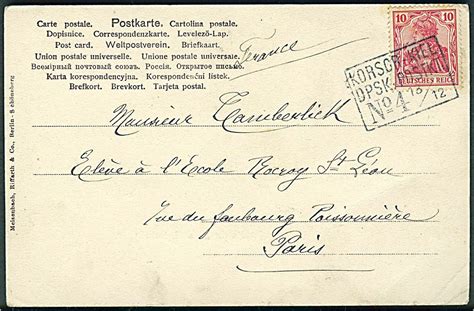 Carte postale. Postkarte. Cartolina postale.
Dopisnice. Correspondenzkarte. Levelező-Lap.
Post card. Weltpostverein. Briefkaart.
Union postale universelle. Unione postale universale.
Всемірный почтовый союзъ. Россія. Открытое письмо.
Karta korespondencyjna. Korespondenční listek.
Brefkort. Brevkort. Tarjeta postal.
France
10 10
DEUTSCHES REICH
KORSÖR-KIEL
DPSK. POSTKT
No. 4 13/12
Monsieur Tamberlick
Elève à l'Ecole Rocroy St Léon
rue du faubourg Poissonnière
Paris
Meisenbach, Riffarth & Co., Berlin-Schöneberg